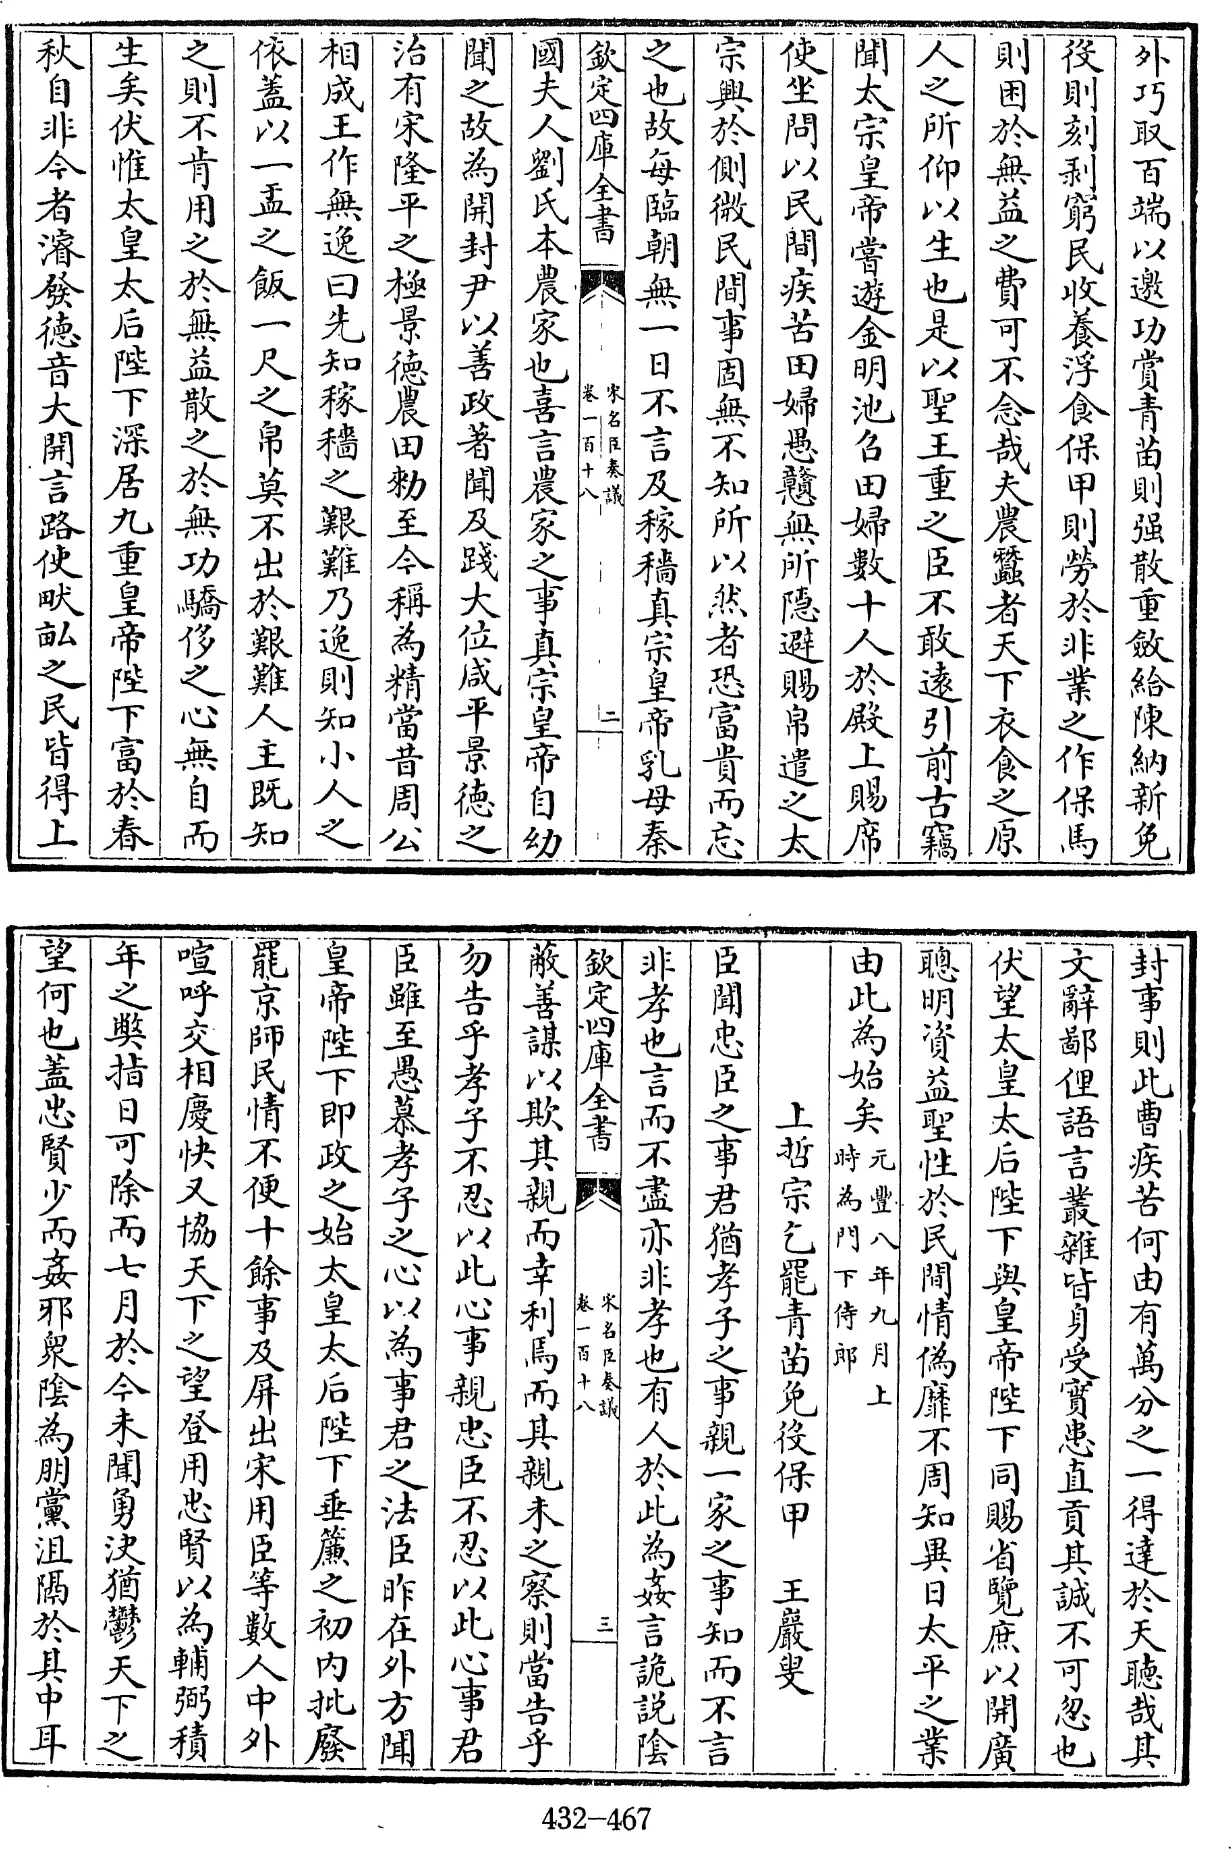 外巧取百端以邀功賞青苗則强散重斂給陳納新免
役則刻剥窮民收養浮食保甲則勞於非業之作保馬
則困於無益之費可不念哉夫農蠶者天下衣食之原
人之所仰以生也是以聖王重之臣不敢遠引前古竊
聞太宗皇帝嘗遊金明池召田婦數十人於殿上賜席
使坐問以民間疾苦田婦愚戇無所隱避賜帛遣之太
宗興於側微民間事固無不知所以然者恐富貴而忘
之也故每臨朝無一日不言及稼穡真宗皇帝乳母秦
欽定四庫全書
宋名臣奏議
卷一百十八
二
國夫人劉氏本農家也喜言農家之事真宗皇帝自幼
聞之故為開封尹以善政著聞及踐大位咸平景德之
治有宋隆平之極景德農田勅至今稱為精當昔周公
相成王作無逸曰先知稼穡之艱難乃逸則知小人之
依蓋以一盂之飯一尺之帛莫不出於艱難人主既知
之則不肯用之於無益散之於無功驕侈之心無自而
生矣伏惟太皇太后陛下深居九重皇帝陛下富於春
秋自非今者濬發德音大開言路使畎畝之民皆得上
封事則此曹疾苦何由有萬分之一得達於天聽哉其
文辭鄙俚語言叢雜皆身受實患直貢其誠不可忽也
伏望太皇太后陛下與皇帝陛下同賜省覽庶以開廣
聰明資益聖性於民間情偽靡不周知異日太平之業
由此為始矣元豐八年九月上
時為門下侍郎
上哲宗乞罷青苗免役保甲　王巖叟
臣聞忠臣之事君猶孝子之事親一家之事知而不言
非孝也言而不盡亦非孝也有人於此為姦言詭説陰
欽定四庫全書
宋名臣奏議
卷一百十八
三
蔽善謀以欺其親而幸利焉而其親未之察則當告乎
勿告乎孝子不忍以此心事親忠臣不忍以此心事君
臣雖至愚慕孝子之心以為事君之法臣昨在外方聞
皇帝陛下即政之始太皇太后陛下垂簾之初内批廢
罷京師民情不便十餘事及屏出宋用臣等數人中外
喧呼交相慶快又協天下之望登用忠賢以為輔弼積
年之獘指日可除而七月於今未聞勇決猶鬱天下之
望何也蓋忠賢少而姦邪衆陰為朋黨沮隔於其中耳
432-467